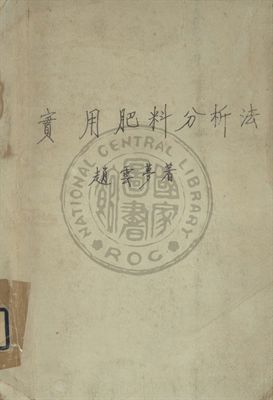 實用肥料分析法
趙雲夢著
NATIONAL CENTRAL LIBRARY
國家圖書館
ROC